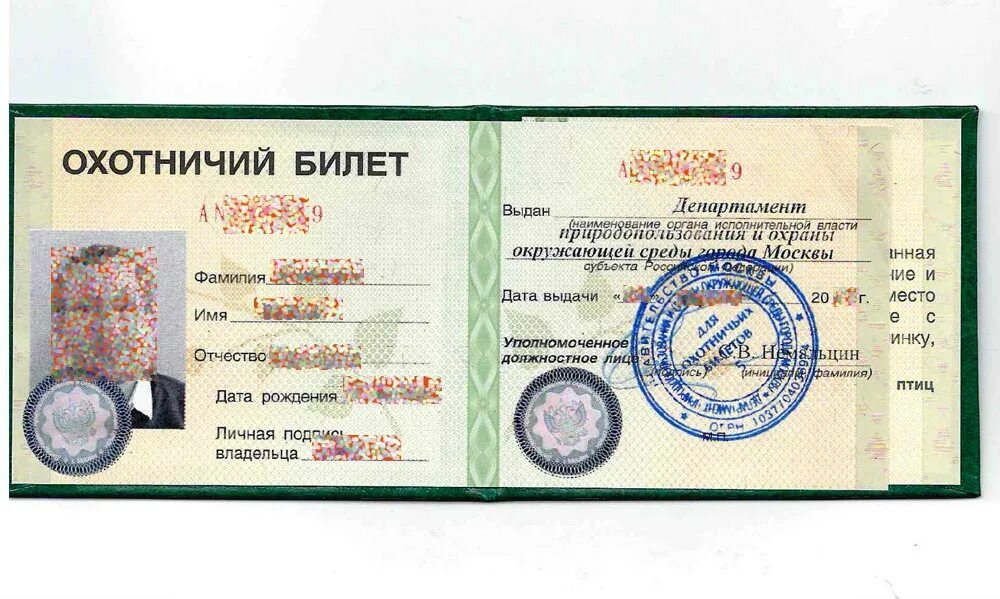 ОХОТНИЧИЙ БИЛЕТ
AN 9
Фамилия
Имя
Отчество
Дата рождения
Личная подпись
владельца
A 9
Выдан Департамент
(наименование органа исполнительной власти
природопользования и охраны
окружающей среды города Москвы
субъекта Российской Федерации)
Дата выдачи « » 20 г.
Уполномоченное
должностное лицо В. Немальцин
(подпись) (инициалы, фамилия)
М.П.
ДЛЯ
ОХОТНИЧЬИХ
БИЛЕТОВ
ПРАВИТЕЛЬСТВО МОСКВЫ
ОГРН
анная
ние и
место
е с
инку,
птиц